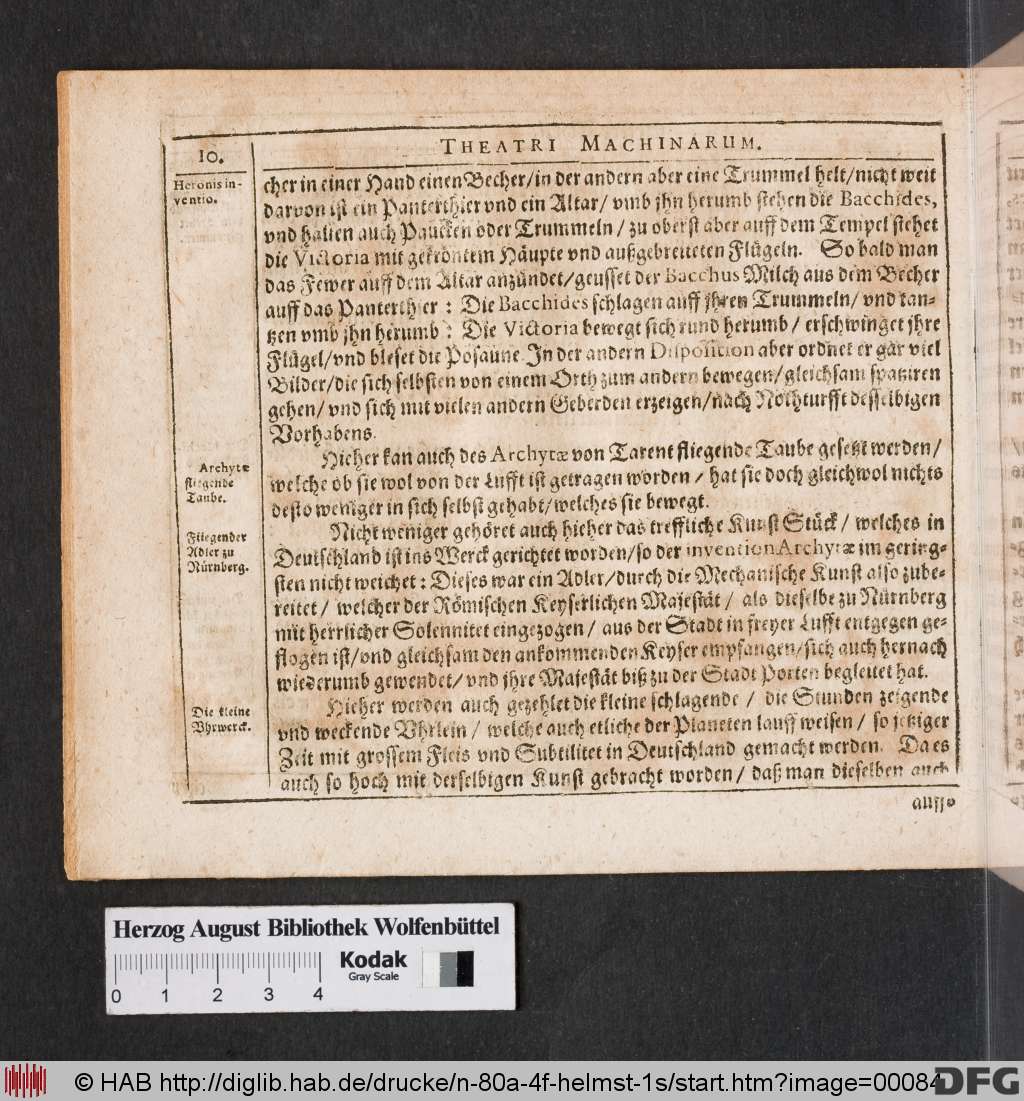 THEATRI MACHINARUM.
10.
Heronis in-
ventio.
cher in einer Hand einen Becher/in der andern aber eine Trummel helt/nicht weit
darvon ist ein Panterthier vnd ein Altar/ vmb jhn herumb stehen die Bacchides,
vnd halten auch Paucken oder Trummeln/ zu oberst aber auff dem Tempel stehet
die Victoria mit gekröntem Häupte vnd außgebreiteten Flügeln. So bald man
das Fewer auff dem Altar anzündet/geusset der Bacchus Milch aus dem Becher
auff das Panterthier: Die Bacchides schlagen auff jhren Trummeln/ vnd tan-
tzen vmb jhn herumb: Die Victoria bewegt sich rund herumb/ erschwinget jhre
Flügel/vnd bleset die Posaune. In der andern Disposition aber ordnet er gar viel
Bilder/die sich selbsten von einem Orth zum andern bewegen/gleichsam spatziren
gehen/ vnd sich mit vielen andern Geberden erzeigen/nach Nothturfft desselbigen
Vorhabens.
Archytæ
fliegende
Taube.
Hieher kan auch des Archytæ von Tarent fliegende Taube gesetzt werden/
welche ob sie wol von der Lufft ist getragen worden/ hat sie doch gleichwol nichts
desto weniger in sich selbst gehabt/welches sie bewegt.
Fliegender
Adler zu
Nürnberg.
Nicht weniger gehöret auch hieher das treffliche Kunst Stück/ welches in
Deutschland ist ins Werck gerichtet worden/so der invention Archytæ im gering-
sten nicht weichet: Dieses war ein Adler/durch die Mechanische Kunst also zube-
reitet/ welcher der Römischen Keyserlichen Majestät/ als dieselbe zu Nürnberg
mit herrlicher Solennitet eingezogen/ aus der Stadt in freyer Lufft entgegen ge-
flogen ist/vnd gleichsam den ankommenden Keyser empfangen/sich auch hernach
wiederumb gewendet/ vnd jhre Majestät biß zu der Stadt Porten begleitet hat.
Die kleine
Vhrwerck.
Hieher werden auch gezehlet die kleine schlagende/ die Stunden zeigende
vnd weckende Vhrlein/ welche auch etliche der Planeten lauff weisen/ so jetziger
Zeit mit grossem Fleis vnd Subtilitet in Deutschland gemacht werden. Da es
auch so hoch mit derselbigen Kunst gebracht worden/ daß man dieselben auch
Herzog August Bibliothek Wolfenbüttel
Kodak
Gray Scale
0 1 2 3 4
© HAB http://diglib.hab.de/drucke/n-80a-4f-helmst-1s/start.htm?image=00084
DFG